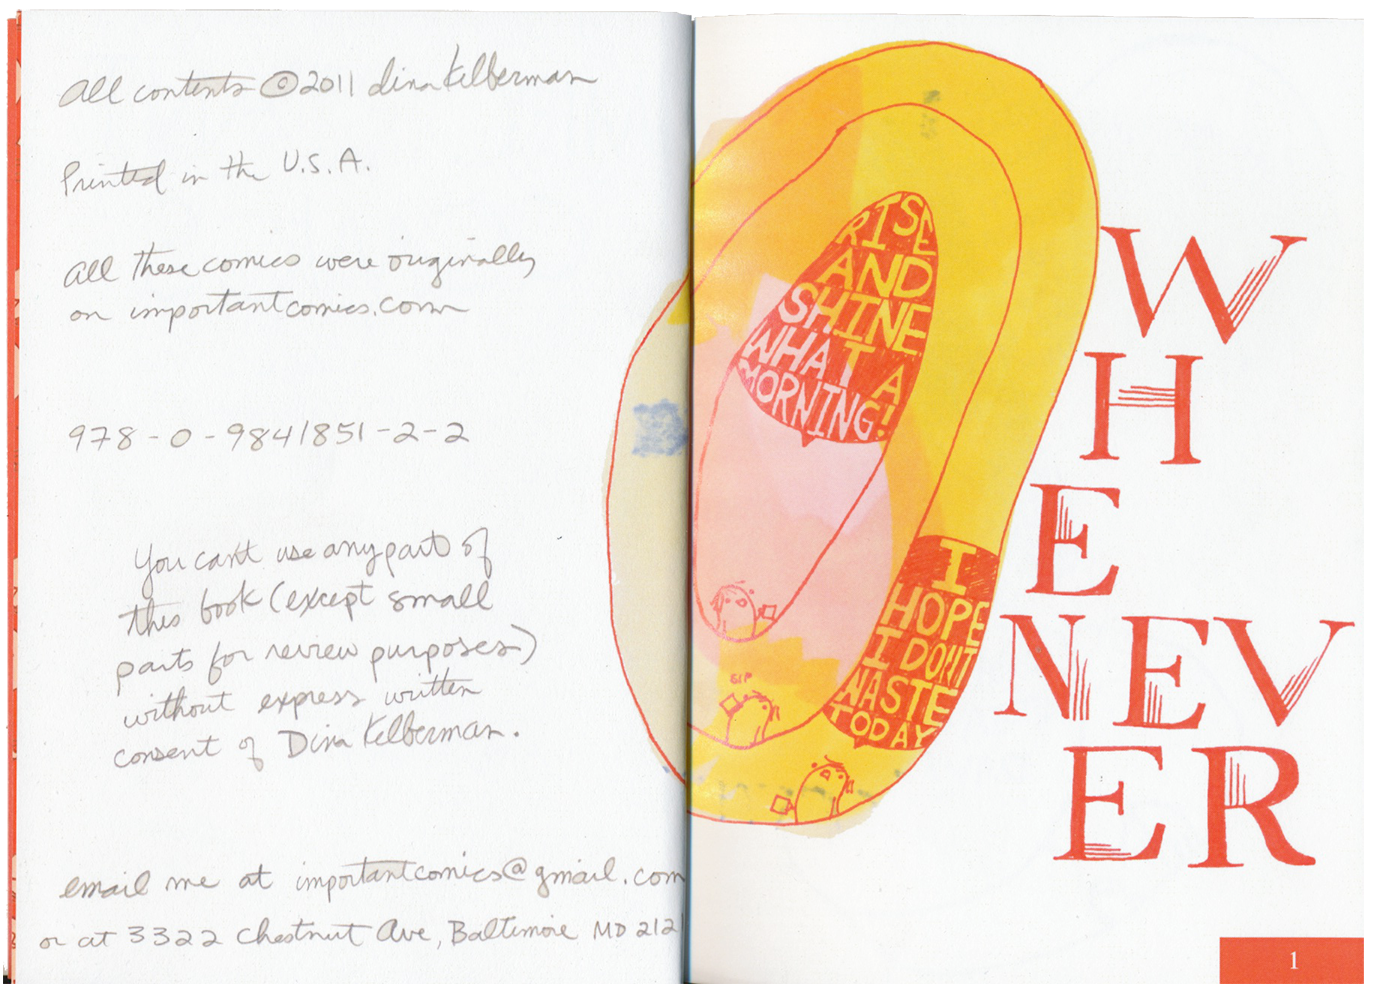 All contents © 2011 dina Kelberman
Printed in the U.S.A.
All these comics were originally
on importantcomics.com
978-0-9841851-2-2
You can't use any part of
this book (except small
parts for review purposes)
without express written
consent of Dina Kelberman.
email me at importantcomics@gmail.com
or at 3322 Chestnut Ave, Baltimore MD 2121
RISE
AND
SHINE
WHAT A
MORNING!
I
HOPE
I DON'T
WASTE
TODAY
SIP
W
H
E
NEV
ER
1